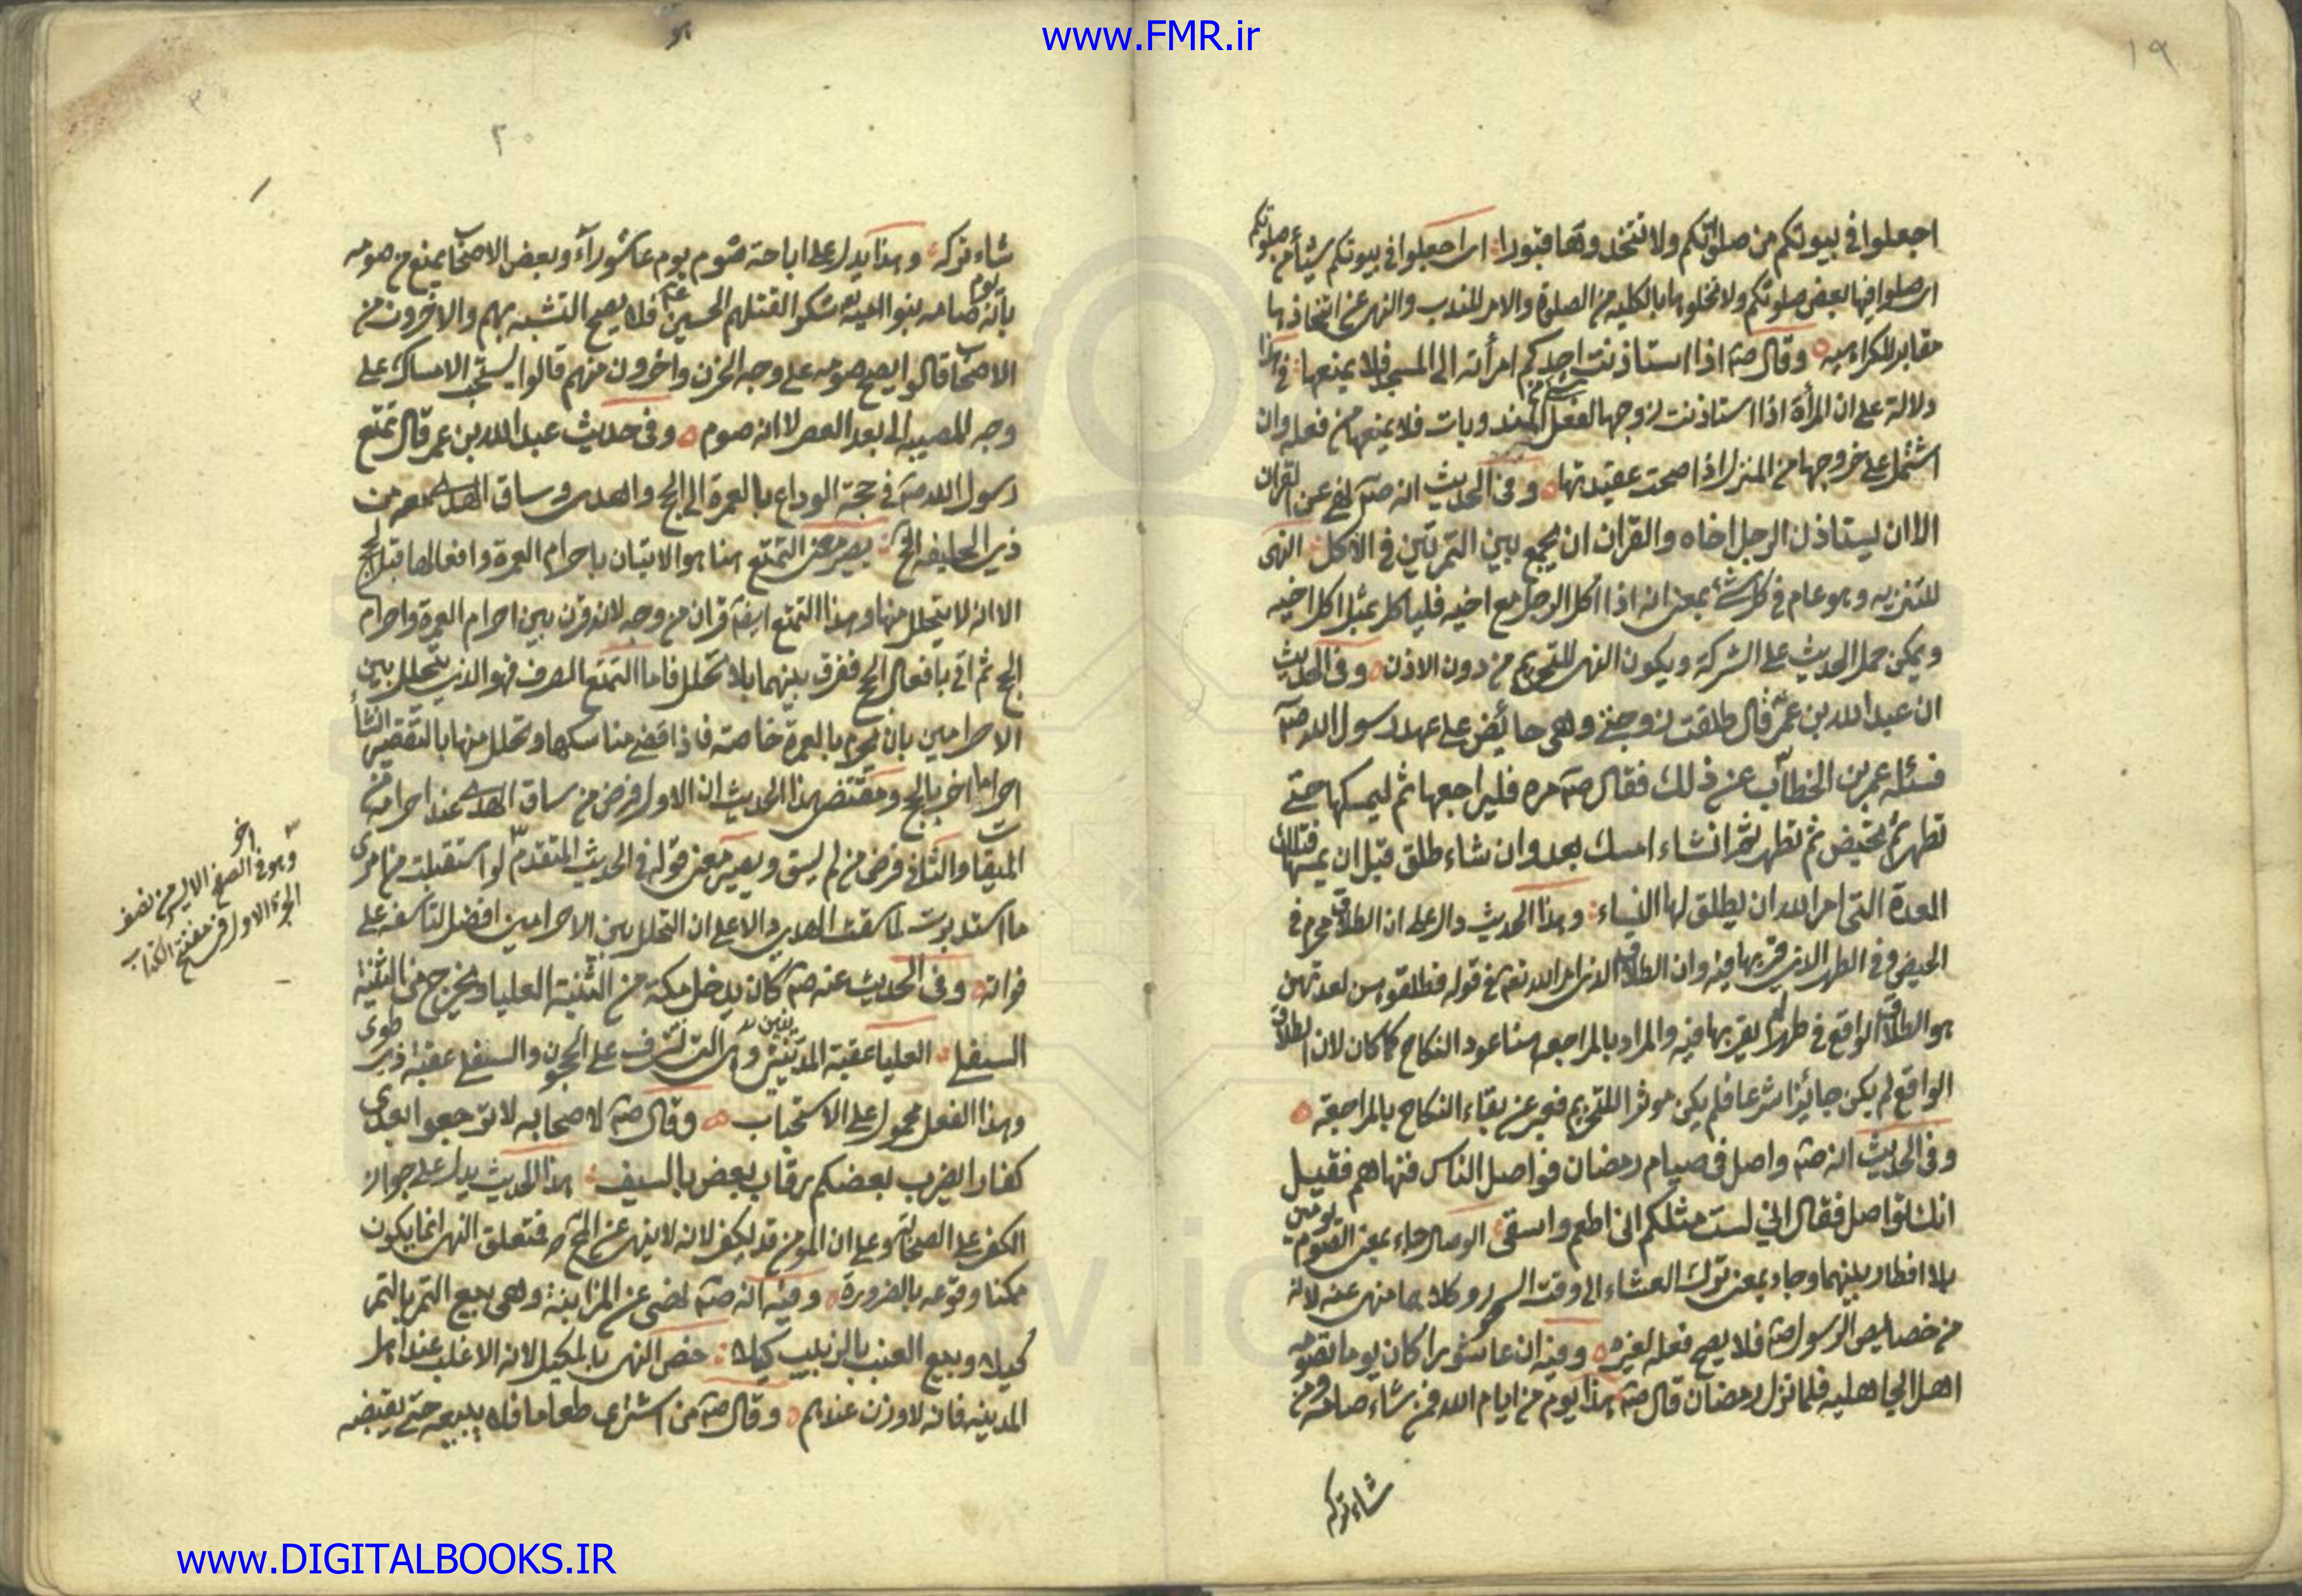 www.FMR.ir
١٩
اجعلوا في بيوتكم من صلواتكم ولا تتخذوها قبورا اى اجعلوا في بيوتكم شيئا من صلوتكم
اى صلوا فيها بعض صلوتكم ولا تخلوها بالكلية من الصلوة والامر للندب والنهى عن اتخاذها
مقابر للكراهية وقال صه اذا استاذنت احدكم امرأته الى المسجد فلا يمنعها في هذا
دلالة على ان المرأة اذا استاذنت زوجها لفعل المندوبات فلا يمنعها من فعله وان
اشتمل على خروجها من المنزل اذا صحت عقيدتها وفى الحديث انه صه نهى عن القران
الا ان يستاذن الرجل اخاه والقران ان يجمع بين التمرتين في الاكل النهى
للتنزيه وهو عام في كل شئ بمعنى انه اذا اكل الرجل مع اخيه فلياكل بمثل اكل اخيه
ويمكن حمل الحديث على الشركة ويكون النهى للتحريم من دون الاذن وفى الحديث
ان عبد الله بن عمر قال طلقت زوجتى وهى حائض على عهد رسول الله صه
فسئله عمر بن الخطاب عن ذلك فقال صه مره فليراجعها ثم ليمسكها حتى
تطهر ثم تحيض ثم تطهر ثم ان شاء امسك بعد وان شاء طلق قبل ان يمسها فتلك
العدة التى امر الله ان يطلق لها النساء وهذا الحديث دال على ان الطلاق محرم في
الحيض وفى الطهر الذى قربها فيه وان الطلاق الذى امر الله تعه في قوله فطلقوهن لعدتهن
هو الطلاق الواقع في طهر لم يقربها فيه والمراد بالمراجعه هنا عود النكاح كما كان لان الطلاق
الواقع لم يكن جائزا شرعا فلم يكن موثرا للتحريم فعبر عن بقاء النكاح بالمراجعة
وفى الحديث انه صه واصل في صيام رمضان فواصل الناس فنهاهم فقيل
انك تواصل فقال انى لست مثلكم انى اطعم واسقى الوصال جاء بمعنى الصوم يومين
بلا افطار بينهما وجاء بمعنى ترك العشاء الى وقت السحر وكلاهما منهى عنه لانه
من خصايص الرسول صه فلا يصح فعله لغيره وفيه ان عاشورا كان يوما تصومه
اهل الجاهليه فلما نزل رمضان قال صه هذا يوم من ايام الله فمن شاء صامه ومن
شاء تركه
٢٠
شاء تركه وهذا يدل على اباحة صوم يوم عاشورآء وبعض الاصحاب يمنع من صومه
بانه يوم صامه بنو اميه شكرا لقتلهم الحسين عه فلا يصح التشبه بهم والاخرون من
الاصحاب قالوا يصح صومه على وجه الحزن واخرون منهم قالوا يستحب الامساك على
وجه المصيبه الى بعد العصر لا انه صوم وفى حديث عبد الله بن عمر قال تمتع
رسول الله صه في حجة الوداع بالعمرة الى الحج واهدى وساق الهدى معه من
ذى الحليفه الخ يصير معنى التمتع هنا هو الاتيان باحرام العمرة وافعالها قبل الحج
الا انه لا يتحلل منها وهذا التمتع ايضه قران من وجه لانه قرن بين احرام العمرة واحرام
الحج ثم اتى بافعال الحج ففرق بينهما بلا تحلل فاما التمتع الصرف فهو الذى يتحلل بين
الاحرامين بان يحرم بالعمرة خاصة فاذا قضى مناسكها وتحلل منها بالتقصير انشأ
احراما اخر بالحج ومقتضى هذا الحديث ان الاول فرض من ساق الهدى عند احرامه من
الميقات والثانى فرض من لم يسق ويصير معنى قوله في الحديث المتقدم لو استقبلت من امرى
ما استدبرت لما سقت الهدى دالا على ان التحلل بين الاحرامين افضل لتاسفه على
فواته وفى الحديث عنه صه كان يدخل مكة من الثنية العليا ويخرج من الثنية
السفلى العليا عقبة المدنيين وهى التى تشرف على الحجون والسفلى عقبة ذى طوى
وهذا الفعل محمول على الاستحباب وقال صه لاصحابه لا ترجعوا بعدى
كفارا يضرب بعضكم رقاب بعض بالسيف هذا الحديث يدل على جواز
الكفر على الصحابة وعلى ان المومن قد يكفر لانه لا ينهى عن المحال فتعلق النهى انما يكون
ممكنا وقوعه بالضرورة وفيه انه صه نهى عن المزابنة وهى بيع التمر بالثمر
كيلا وبيع العنب بالزبيب كيلا خص النهى بالمكيل لانه الاغلب عند اهل
المدينه فانه لا وزن عندهم وقال صه من اشترى طعاما فلا يبيعه حتى يقبضه
اخر
وهو في الصفح الايسر من نصف
الجزء الاول في مفتتح الكتاب
www.DIGITALBOOKS.IR